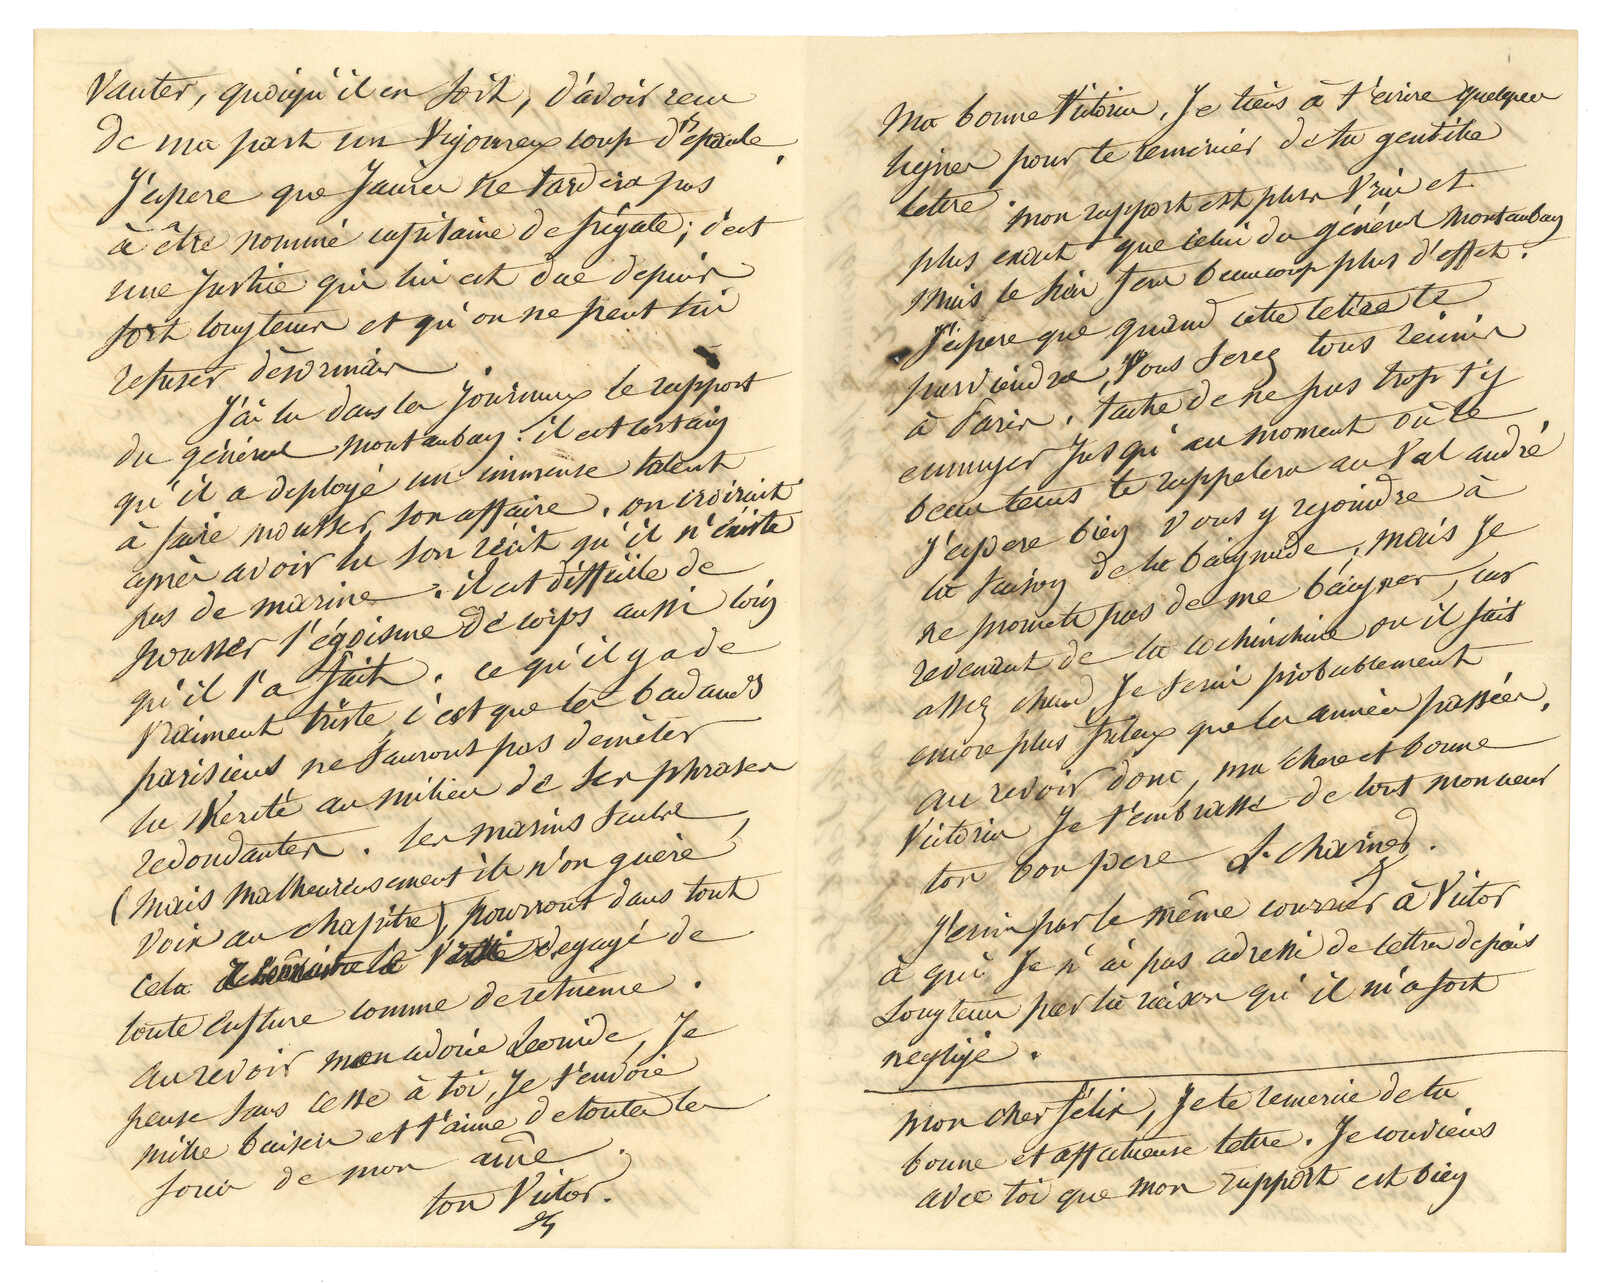 Vanter, quoiqu'il en soit, d'avoir reçu
de ma part un vigoureux coup d'épaule.
J'espere que Jaurès ne tardera pas
à être nommé capitaine de frégate; c'est
une justice qui lui est due depuis
fort longtems et qu'on ne peut lui
refuser désormais
J'ai lu dans les journaux le rapport
du général Montauban. il est certain
qu'il a deployé un immense talent
à faire mousser son affaire. on croirait
après avoir lu son récit qu'il n'éxiste
pas de marine. il est difficile de
pousser l'égoisme de corps aussi loin
qu'il l'a fait. ce qu'il y a de
vraiment triste, c'est que les badauds
parisiens ne sauront pas demêler
la Verité au milieu de ses phrases
redondantes. les marins seuls
(mais malheureusement ils n'on guère
voix au chapitre) pourront dans tout
cela degagé de
toute enflure comme de
au revoir mon adorée Leonide, Je
pense sans cesse à toi, Je t'envoie
mille baisers et t'aime de toutes les
forces de mon ame.
ton Victor.
Ma bonne Victorine, Je tiens à t'écrire quelques
lignes pour te remercier de ta gentille
lettre. mon rapport est plus vrai et
plus exact que celui du général Montauban
mais le sien fera beaucoup plus d'effet.
J'espere que quand cette lettre te
parviendra, vous serez tous réunis
à Paris. tache de ne pas trop t'y
ennuyer jusqu'au moment où le
beau tems te rappelera au Val andré
J'espere bien vous y rejoindre à
la saison de la baignade, mais Je
ne promets pas de me baigner, car
revenant de la cochinchine ou il fait
assez chaud, Je serai probablement
encore plus frileux que les années passées.
au revoir donc, ma chere et bonne
Victorine Je t'embrasse de tout mon cœur
ton bon pere L. Charner.
J'écris par le même courrier à Victor
à qui Je n'ai pas adressé de lettres depuis
longtems par la raison qu'il m'a fort
negligé.
mon cher Félix, Je te remercie de ta
bonne et affectueuse lettre. Je conviens
avec toi que mon rapport est bien